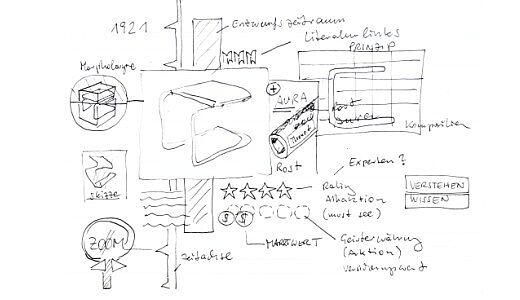 1921
Entwurfszeitraum
Literaturlinks
PRINZIP
Morphologie
AURA
Rost
Komposition
Rost
Experten?
Skizze
Rating
Attraktion
(must see)
VERSTEHEN
WISSEN
$ $
MARKTWERT
ZOOM
Zeitachse
(Auktion)